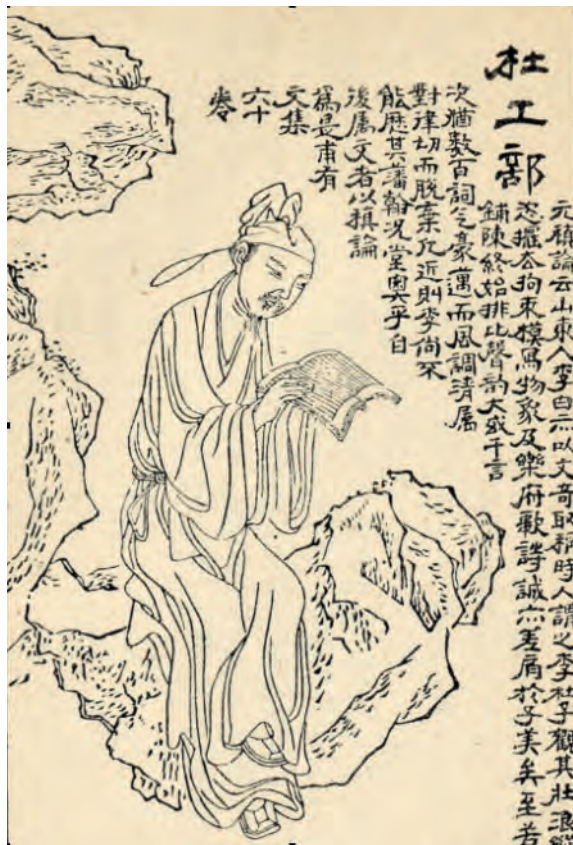 杜工部
元稹論云山東人李白亦以文奇取稱時人謂之李杜予觀其壯浪縱
恣擺去拘束模寫物象及樂府歌詩誠亦差肩於子美矣至若
鋪陳終始排比聲韵大或千言
次猶數百詞气豪邁而風調清屬
對律切而脫棄凡近則李尚不
能歷其藩翰况堂奧乎自
後屬文者以稹論
爲是甫有
文集
六十
卷